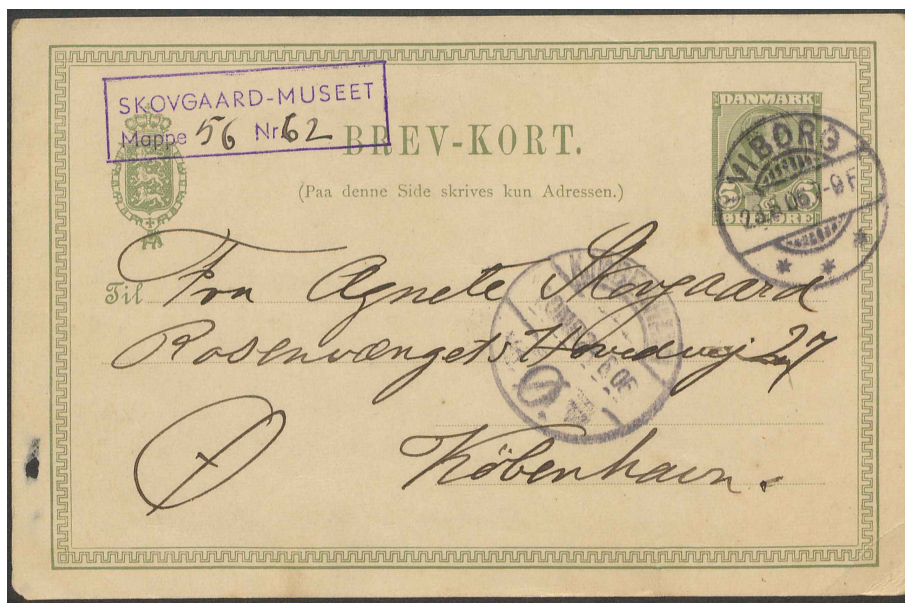 SKOVGAARD-MUSEET
Mappe 56 Nr 62
BREV-KORT.
(Paa denne Side skrives kun Adressen.)
DANMARK
5 5
ØRE ØRE
VIBORG
Til Fru Agnete Skovgaard
Rosenvængets Hovedvej 27
Ø København.